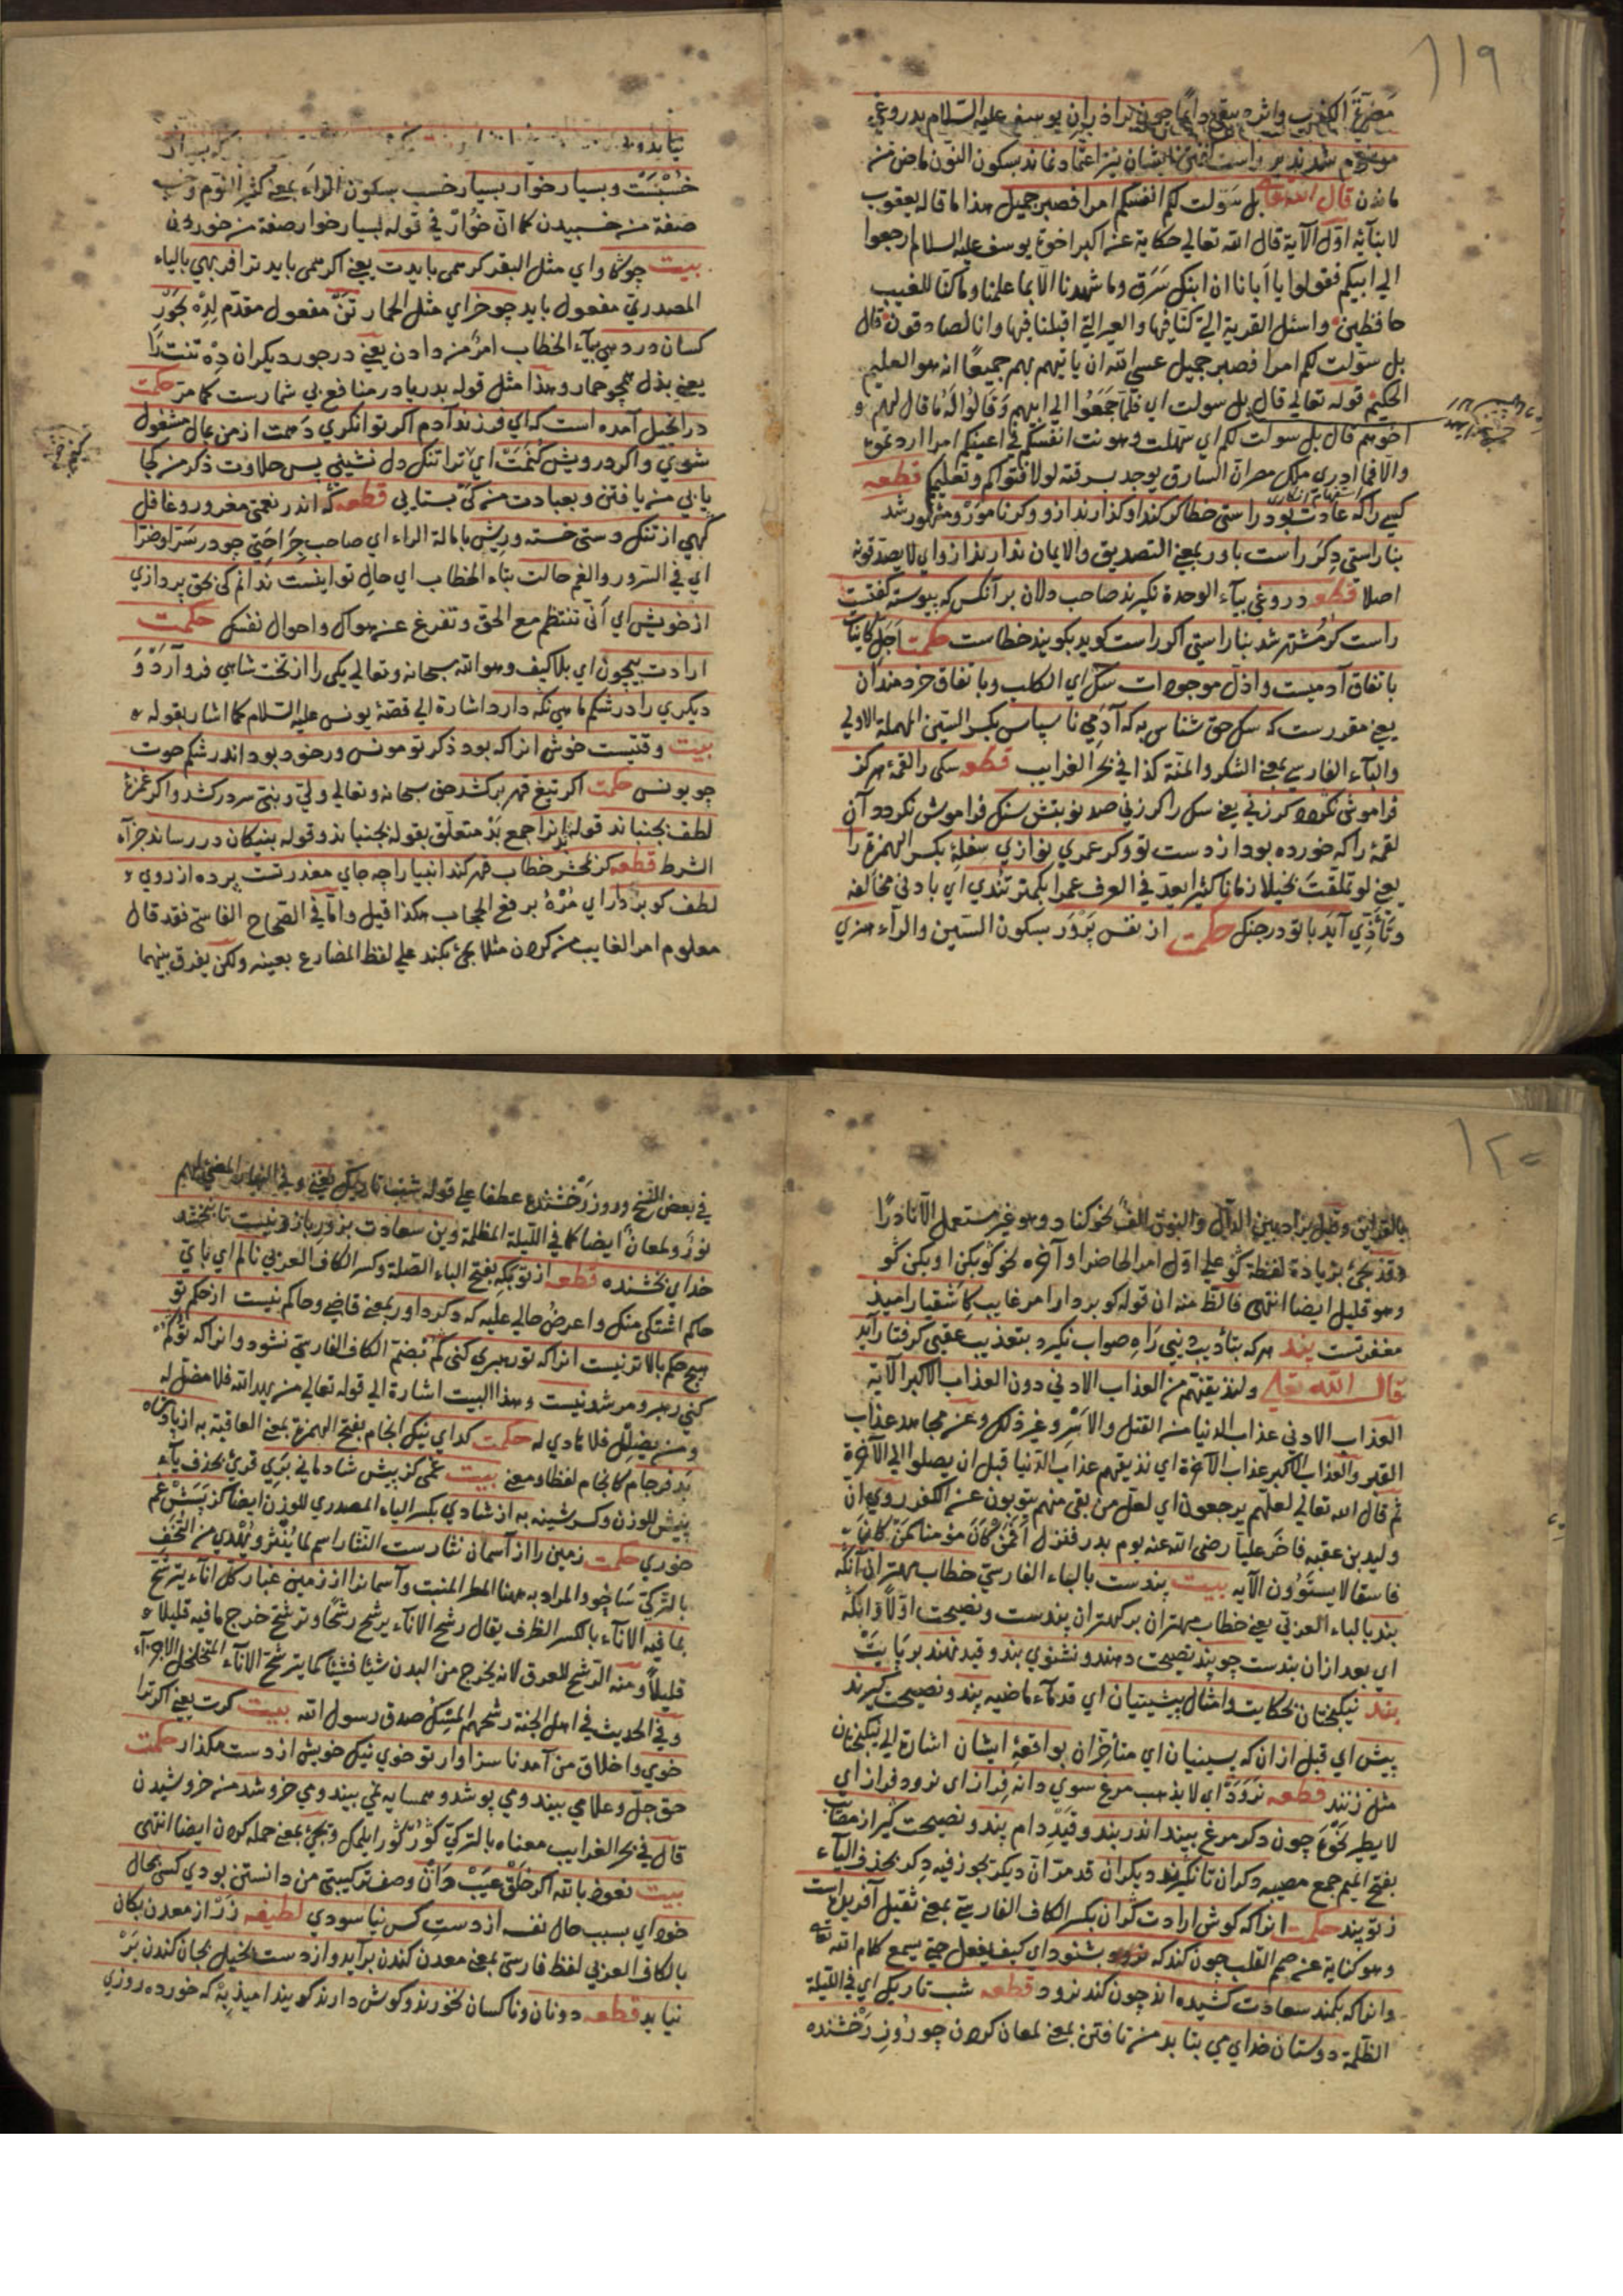 ١١٩
واثره يبقى دائما چون برادران يوسف عليه السلام بدروغي
موسوم شدند بر راست ايشان نيز اعتماد نماند بسكون النون ماض من
ماندن قال الله تعالى بل سولت لكم انفسكم امرا فصبر جميل هذا ما قاله يعقوب
لابنائه اول الآية قال الله تعالي حكاية عن اكبر اخوة يوسف عليه السلام ارجعوا
الي ابيكم فقولوا يا ابانا ان ابنك سَرَق وما شهدنا الا بما علمنا وما كنا للغيب
حافظين واسئل القرية التي كنا فيها والعير التي اقبلنا فيها وانا لصادقون قال
بل سولت لكم امرا فصبر جميل عسي الله ان ياتيهم بهم جميعًا انه هو العليم
الحكيم قوله تعالي قال بل سولت اي فلما رجعوا الي ابيهم وقالوا له ما قال لهم
اخوهم قال بل سولت لكم اي سهلت وهونت انفسكم في اعينكم امرا اردتموه
والا فما ادري ملك مصر ان السارق يوجد بسرقته لولا فتواكم وتعليمكم قطعه
كسي را كه عادت بود راستي خطا گر كند او گذارند ازو وگر نامور شد
بنا راستي دگر راست باور بمعني التصديق والايمان ندارند ازو اي لا يصدقونه
اصلا قطعه دروغي بياء الوحدة نگيرند صاحب دلان بر آنكس كه پيوسته گفتست
راست گر مشتهر شد بنا راستي اگر راست گويد بگويند خطاست حكمت اجل كائنات
باتفاق آدميست واذل موجودات سگ اي الكلب وباتفاق خردمندان
يعني مقررست كه سگ حق شناس به كه آدمي نا سپاس بكسر السين المهملة الاولي
والباء الفارسي بمعني الشكر والمنة كذا في بحر الغرايب قطعه سگي را لقمه هرگز
فراموش نگردد گر زني يعني سگ را گر زني صد نوبتش سنگ فراموش نگردد آن
لقمه را كه خورده بود از دست تو وگر عمري نوازي سفلة بكسر الهمزة را
يعني لو تملقت بخيلا زمانا كثيرا يعد في العرف عمرا بكمتر تندي اي بادني مخالفه
وتأذي آيد با تو در جنگ حكمت از نفس پرور بسكون السين والراء هنري
نيايد
خُسْبَسْت وبسيار خوار بسيار خسب بسكون الراء بمعني كثير النوم وخسب
صفة من خسبيدن كما ان خوار في قوله بسيار خوار صفة من خوردن
بيت چو گاو اي مثل البقر گر همي بايدت يعني اگر همي بايد ترا فربهي بالياء
المصدري مفعول بايد چو خر اي مثل الحمار تن مفعول مقدم لده بجور
كسان در دهي بياء الخطاب امر من دادن يعني در جور ديگران ده تنت را
يعني بذل همچو حمار وهذا مثل قوله بدريا در منافع بي شمارست كما مر حكمت
در انجيل آمده است كه اي فرزند آدم اگر توانگري دهمت از من بمال مشغول
شوي واگر درويش كنمت اي ترا تنگ دل نشيني پس حلاوت ذكر من كجا
يابي من يافتن وبعبادت من كي شتابي قطعه گه اندر نعمتي مغرور وغافل
گهي از تنگ دستي خسته وريش بامالة الراء اي صاحب جراحتي چو در سرا وضرا
اي في السرور والغم حالت بتاء الخطاب اي حال تو اينست ندانم كي بحق پردازي
از خويش اي اني تنتظم مع الحق وتفرغ عن هواك واحوال نفسك حكمت
ارادت بيچون اي بلا كيف وهو الله سبحانه وتعالي يكي را از تخت شاهي فرو آرد و
ديگري را در شكم ماهي نگه دارد اشارة الي قصة يونس عليه السلام كما اشار بقوله
بيت وقتيست خوش انرا كه بود ذكر تو مونس ور خود بود اندر شكم حوت
چو يونس حكمت اگر تيغ قهر بركشد حق سبحانه وتعالي ولي ونبي سر در كشد واگر غمزه
لطف بجنباند قوله بدانرا جمع بد متعلق بقوله بجنباند وقوله بنيكان در رساند جزاء
الشرط قطعه گر بمحشر خطاب قهر كند انبيا را چه جاي معذرتست پرده از روي
لطف گو بردار اي مُرْهُ برفع الحجاب هكذا قيل واما في الصحاح الفارسي فقد قال
معلوم امر الغايب من كردن مثلا يجئ بكند علي لفظ المضارع بعينه ولكن يفرق بينهما
١٢٠
بالقرائن وقيل يزاد بين الدال والنون الف نحو كناد وهو غير مستعمل الا نادرًا
وقد يجئ بزيادة لفظة گو علي اول امر الحاضر او آخره نحو گو بكن او بكن گو
وهو قليل ايضا انتهى فالظ منه ان قوله گو بردار امر غايب كاشقيا را اميد
مغفرتست پند هر كه بتاديب دنيي راه صواب نگيرد بتعذيب عقبي گرفتار آيد
قال الله تعالى ولنذيقنهم من العذاب الادني دون العذاب الاكبر الآية
العذاب الادني عذاب الدنيا من القتل والاسر وغير ذلك وعن مجاهد عذاب
القبر والعذاب الاكبر عذاب الآخرة اي نذيقهم عذاب الدنيا قبل ان يصلوا الي الآخرة
ثم قال الله تعالي لعلهم يرجعون اي لعل من بقي منهم يتوبون عن الكفر روي ان
وليد بن عقبه فاخر عليا رضي الله عنه يوم بدر فنزل أفمن كان مؤمنا كمن كان
فاسقا لا يستوون الآيه بيت پندست بالباء الفارسي خطاب مهتران آنگه
بند بالباء العربي يعني خطاب مهتران بر كهتران پندست ونصيحت اولا وآنگه
اي بعد ازان بندست چو پند نصيحت دهند ونشنوي بند وقيد نهند بر پايت
پند نيكبختان بحكايت وامثال پيشينيان اي قدماء ماضيه پند ونصيحت گيرند
پيش اي قبل ازان كه پسينيان اي متأخران بواقعه ايشان اشارة الي نيكبختان
مثل زنند قطعه نرود اي لا يذهب مرغ سوي دانه فراز اي نرود فراز اي
لا يطير نحوه چون دگر مرغ بيند اندر بند وقيد دام پند ونصيحت گير از مصائب
بفتح الميم جمع مصيبه دگران تا نگيرند ديگران قد مر ان ديگر يجوز فيه دگر بحذف الياء
ز تو پند حكمت انرا كه گوش ارادت گران بكسر الكاف الفارسي بمعني ثقيل آفريده است
وهو كناية عن صم القلب چون كند كه بشنود اي كيف يفعل حتي يسمع كلام الله تعالى
وانرا كه بكمند سعادت كشيده اند چون كند نرود قطعه شب تاريك اي في الليلة
الظلمة دوستان خداي مي بتابد من تافتن بمعني لمعان كردن چو روز رخشنده
في بعض النسخ وروز رخشنده عطفا علي قوله شب تاريك يعني وفي النهار المضئ لهم
نور ولمعان ايضا كما في الليلة المظلمة وين سعادت بزور بازو نيست تا نبخشد
خداي بخشنده قطعه از تو بكه بفتح الباء الصلة وكسر الكاف العربي نالم اي باي
حاكم اشتكي منك واعرض حالي عليه كه دگر داور بمعني قاضي وحاكم نيست از حكم تو
هيچ حكم بالاتر نيست انرا كه تو رهبري كني گم بضم الكاف الفارسي نشود وانرا كه تو گم
كني رهبر ومرشد نيست وهذا البيت اشارة الي قوله تعالي من يهد الله فلا مضل له
ومن يضلل فلا هادي له حكمت گداي نيك انجام بفتح الهمزة بمعني العاقبة به از پادشاه
بد فرجام كانجام لفظا ومعني بيت غمي كز پيش شادماني بري قرئ بحذف ياء
پيش للوزن وكسر شينه به از شادي بكسر الياء المصدري للوزن ايضا كز پسش غم
خوري حكمت زمين را از آسمان نثارست النثار اسم لما يُنْثَر ويُهْدي من التحف
بالتركي ساچو والمراد به ههنا المطر المنبت وآسمانرا از زمين غبار كل اناء يترشح
بما فيه الاناء بالكسر الظرف يقال رشح الاناء يرشح رشحًا وترشح خرج ما فيه قليلا
قليلًا ومنه الترشح للعرق لانه يخرج من البدن شيئا فشيئا كما يترشح الاناء المتخلخل الاجزاء
وفي الحديث في اهل الجنة رشحهم المسك صدق رسول الله بيت گرت يعني اگر ترا
خوي واخلاق من آمد نا سزاوار تو خوي نيك خويش از دست مگذار حكمت
حق جل وعلا مي بيند ومي پوشد وهمسايه نمي بيند ومي خروشد من خروشيدن
قال في بحر الغرايب معناه بالتركي ايلمك ويجئ بمعني حمله كردن ايضا انتهى
بيت نعوذ بالله اگر خلق عيب دان وصف تركيبي من دانستن بودي كسي بحال
خود اي بسبب حال نفسه از دست كس نياسودي لطيفه زر از معدن بكان
بالكاف العربي لفظ فارسي بمعني معدن كندن برآيد واز دست بخيل بجان كندن بر
نيايد قطعه دونان وناكسان نخورند وگوش دارند گويند اميد به كه خورده روزي